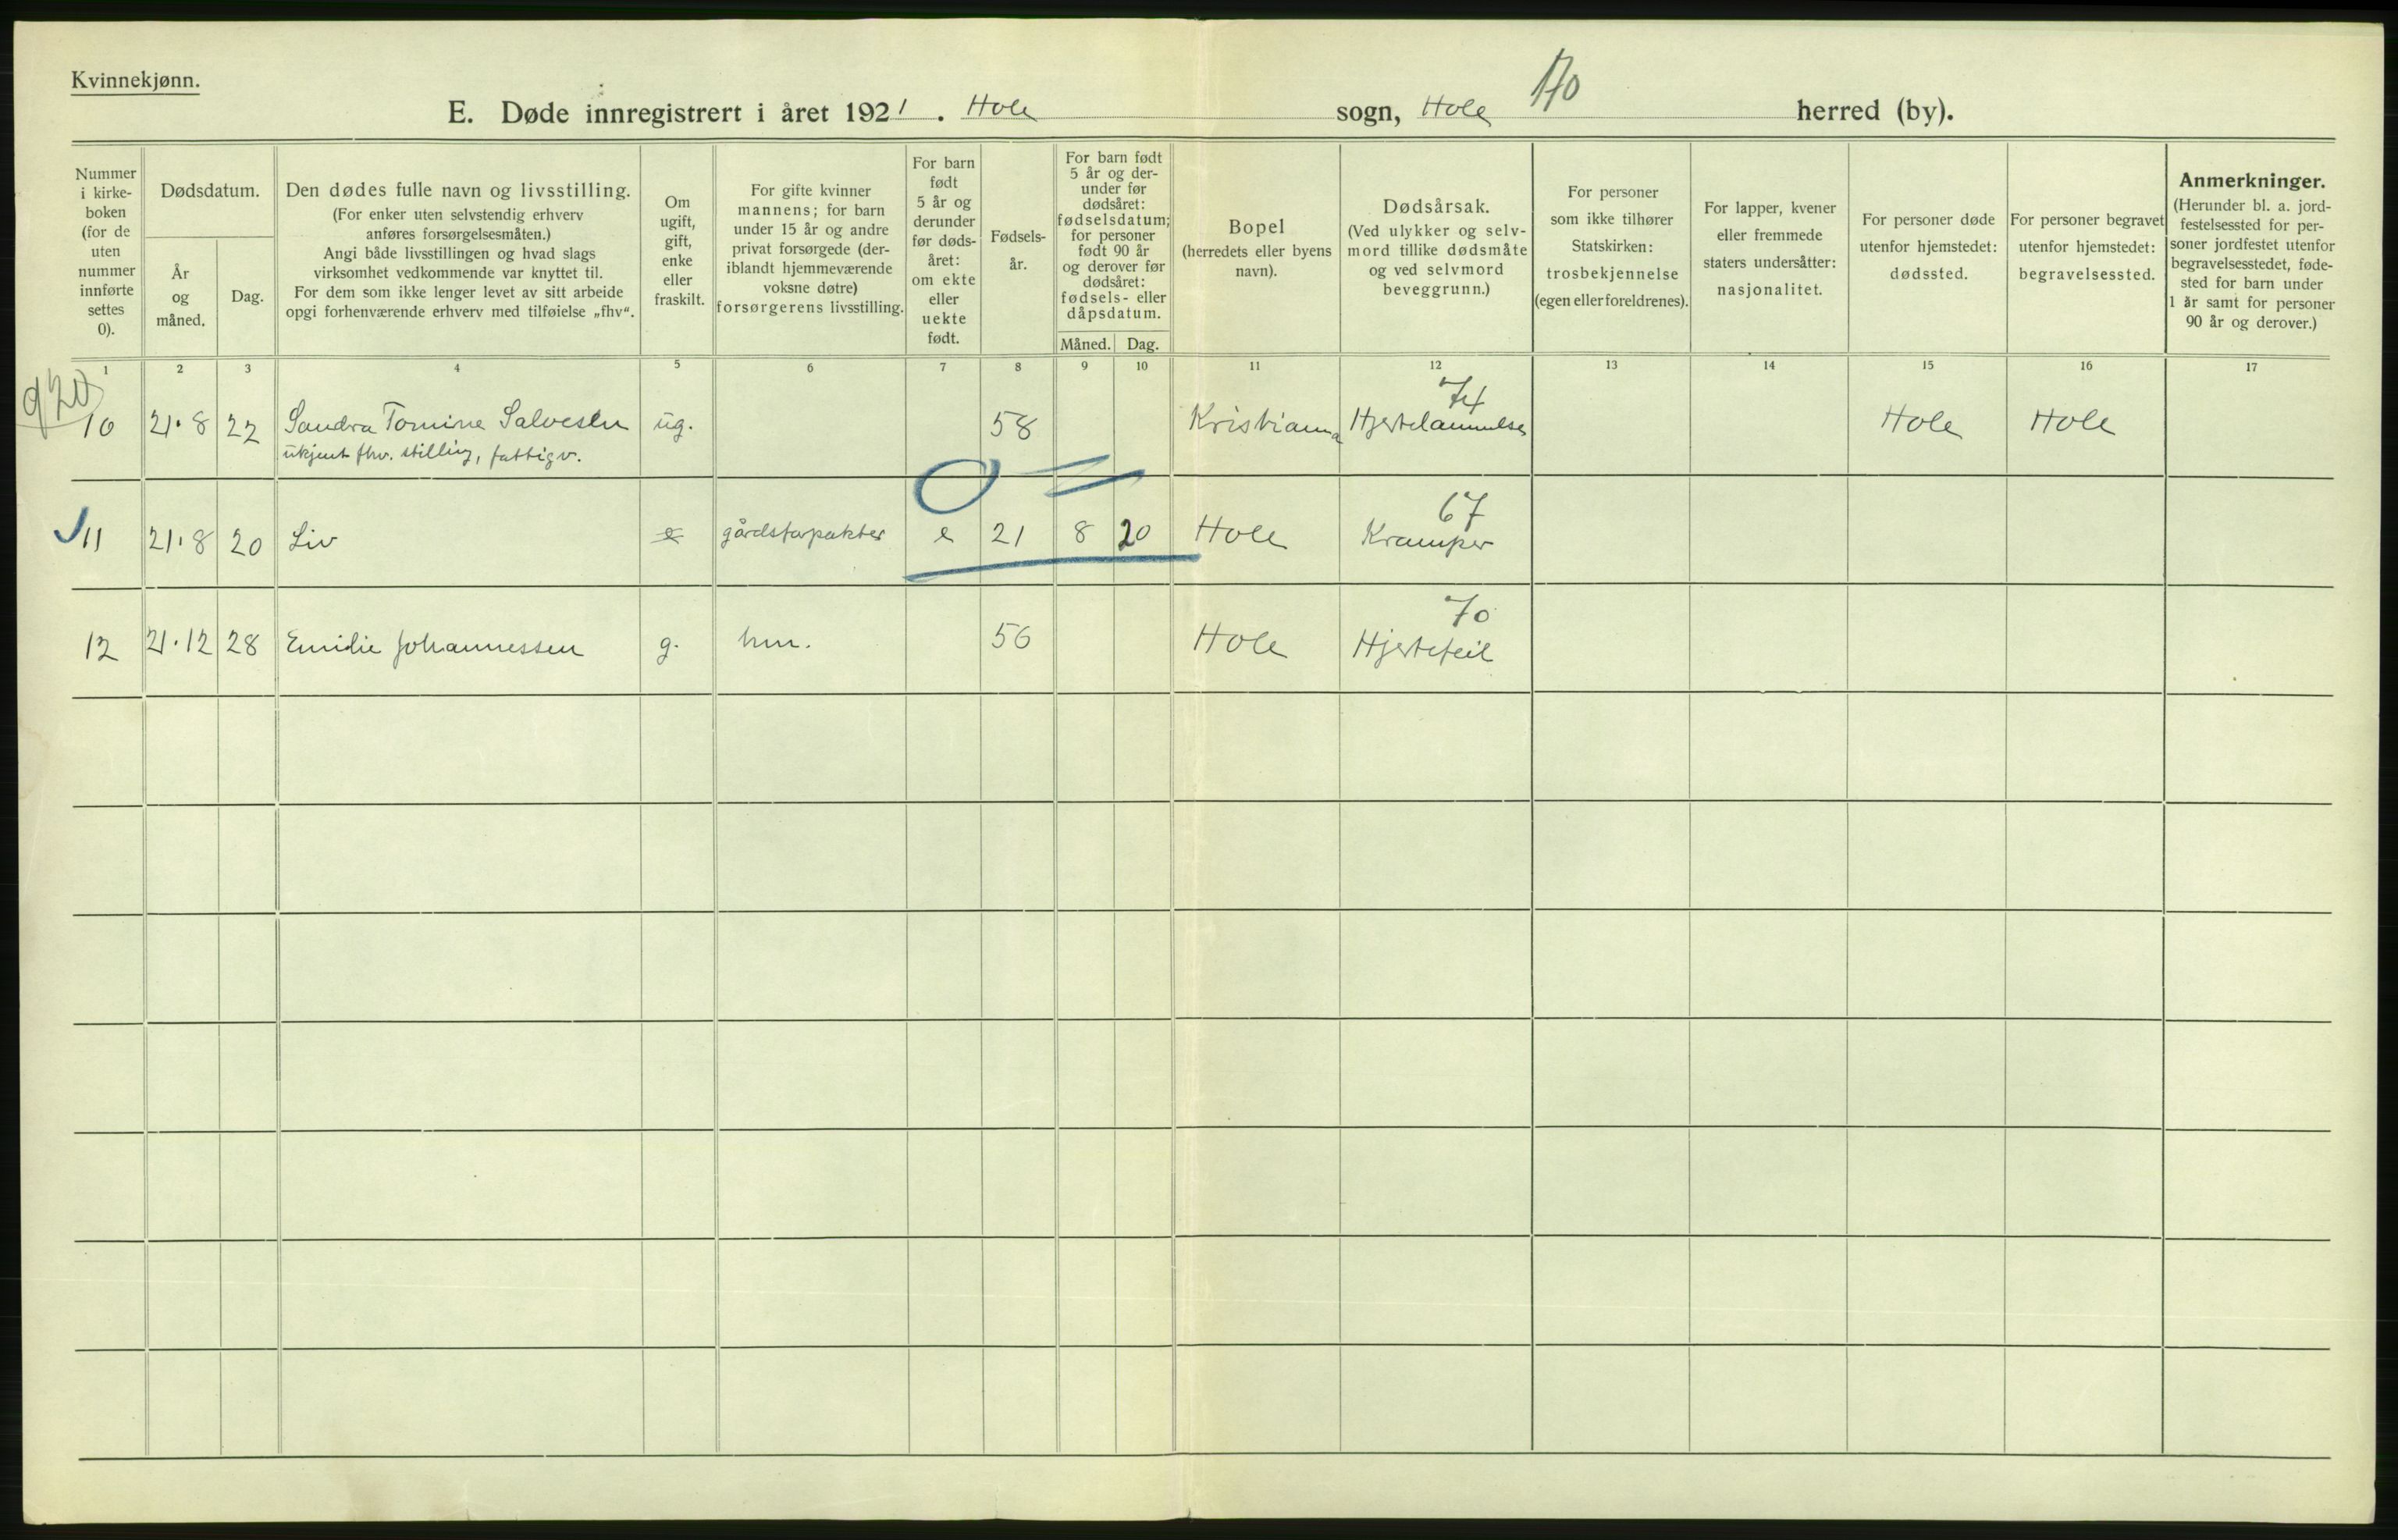 Kvinnekjønn.
170
E. Døde innregistrert i året 1921. Hole sogn, Hole herred (by).
Nummer i kirkeboken (for de uten nummer innførte settes 0).
Dødsdatum.
År og måned.
Dag.
Den dødes fulle navn og livsstilling.
(For enker uten selvstendig erhverv
anføres forsørgelsesmåten.)
Angi både livsstillingen og hvad slags
virksomhet vedkommende var knyttet til.
For dem som ikke lenger levet av sitt arbeide
opgi forhenværende erhverv med tilføielse „fhv“.
Om
ugift,
gift,
enke
eller
fraskilt.
For gifte kvinner
mannens; for barn
under 15 år og andre
privat forsørgede (der-
iblandt hjemmeværende
voksne døtre)
forsørgerens livsstilling.
For barn
født
5 år og
derunder
før døds-
året:
om ekte
eller
uekte
født.
Fødsels-
år.
For barn født
5 år og der-
under før
dødsåret:
fødselsdatum;
for personer
født 90 år
og derover før
dødsåret:
fødsels- eller
dåpsdatum.
Måned. Dag.
Bopel
(herredets eller byens
navn).
Dødsårsak.
(Ved ulykker og selv-
mord tillike dødsmåte
og ved selvmord
beveggrunn.)
For personer
som ikke tilhører
Statskirken:
trosbekjennelse
(egen eller foreldrenes).
For lapper, kvener
eller fremmede
staters undersåtter:
nasjonalitet.
For personer døde
utenfor hjemstedet:
dødssted.
For personer begravet
utenfor hjemstedet:
begravelsessted.
Anmerkninger.
(Herunder bl. a. jord-
festelsessted for per-
soner jordfestet utenfor
begravelsesstedet, føde-
sted for barn under
1 år samt for personer
90 år og derover.)
1 2 3 4 5 6 7 8 9 10 11 12 13 14 15 16 17
920
74
10 21.8 22 Sandra Tomine Salvesen ug. 58 Kristiania Hjertelammelse Hole Hole
ukjent fhv. stilling, fattigv.
67
11 21.8 20 Liv e gårdsforpakter e 21 8 20 Hole Kramper
70
12 21.12 28 Emilie Johannessen g. hm. 56 Hole Hjertefeil